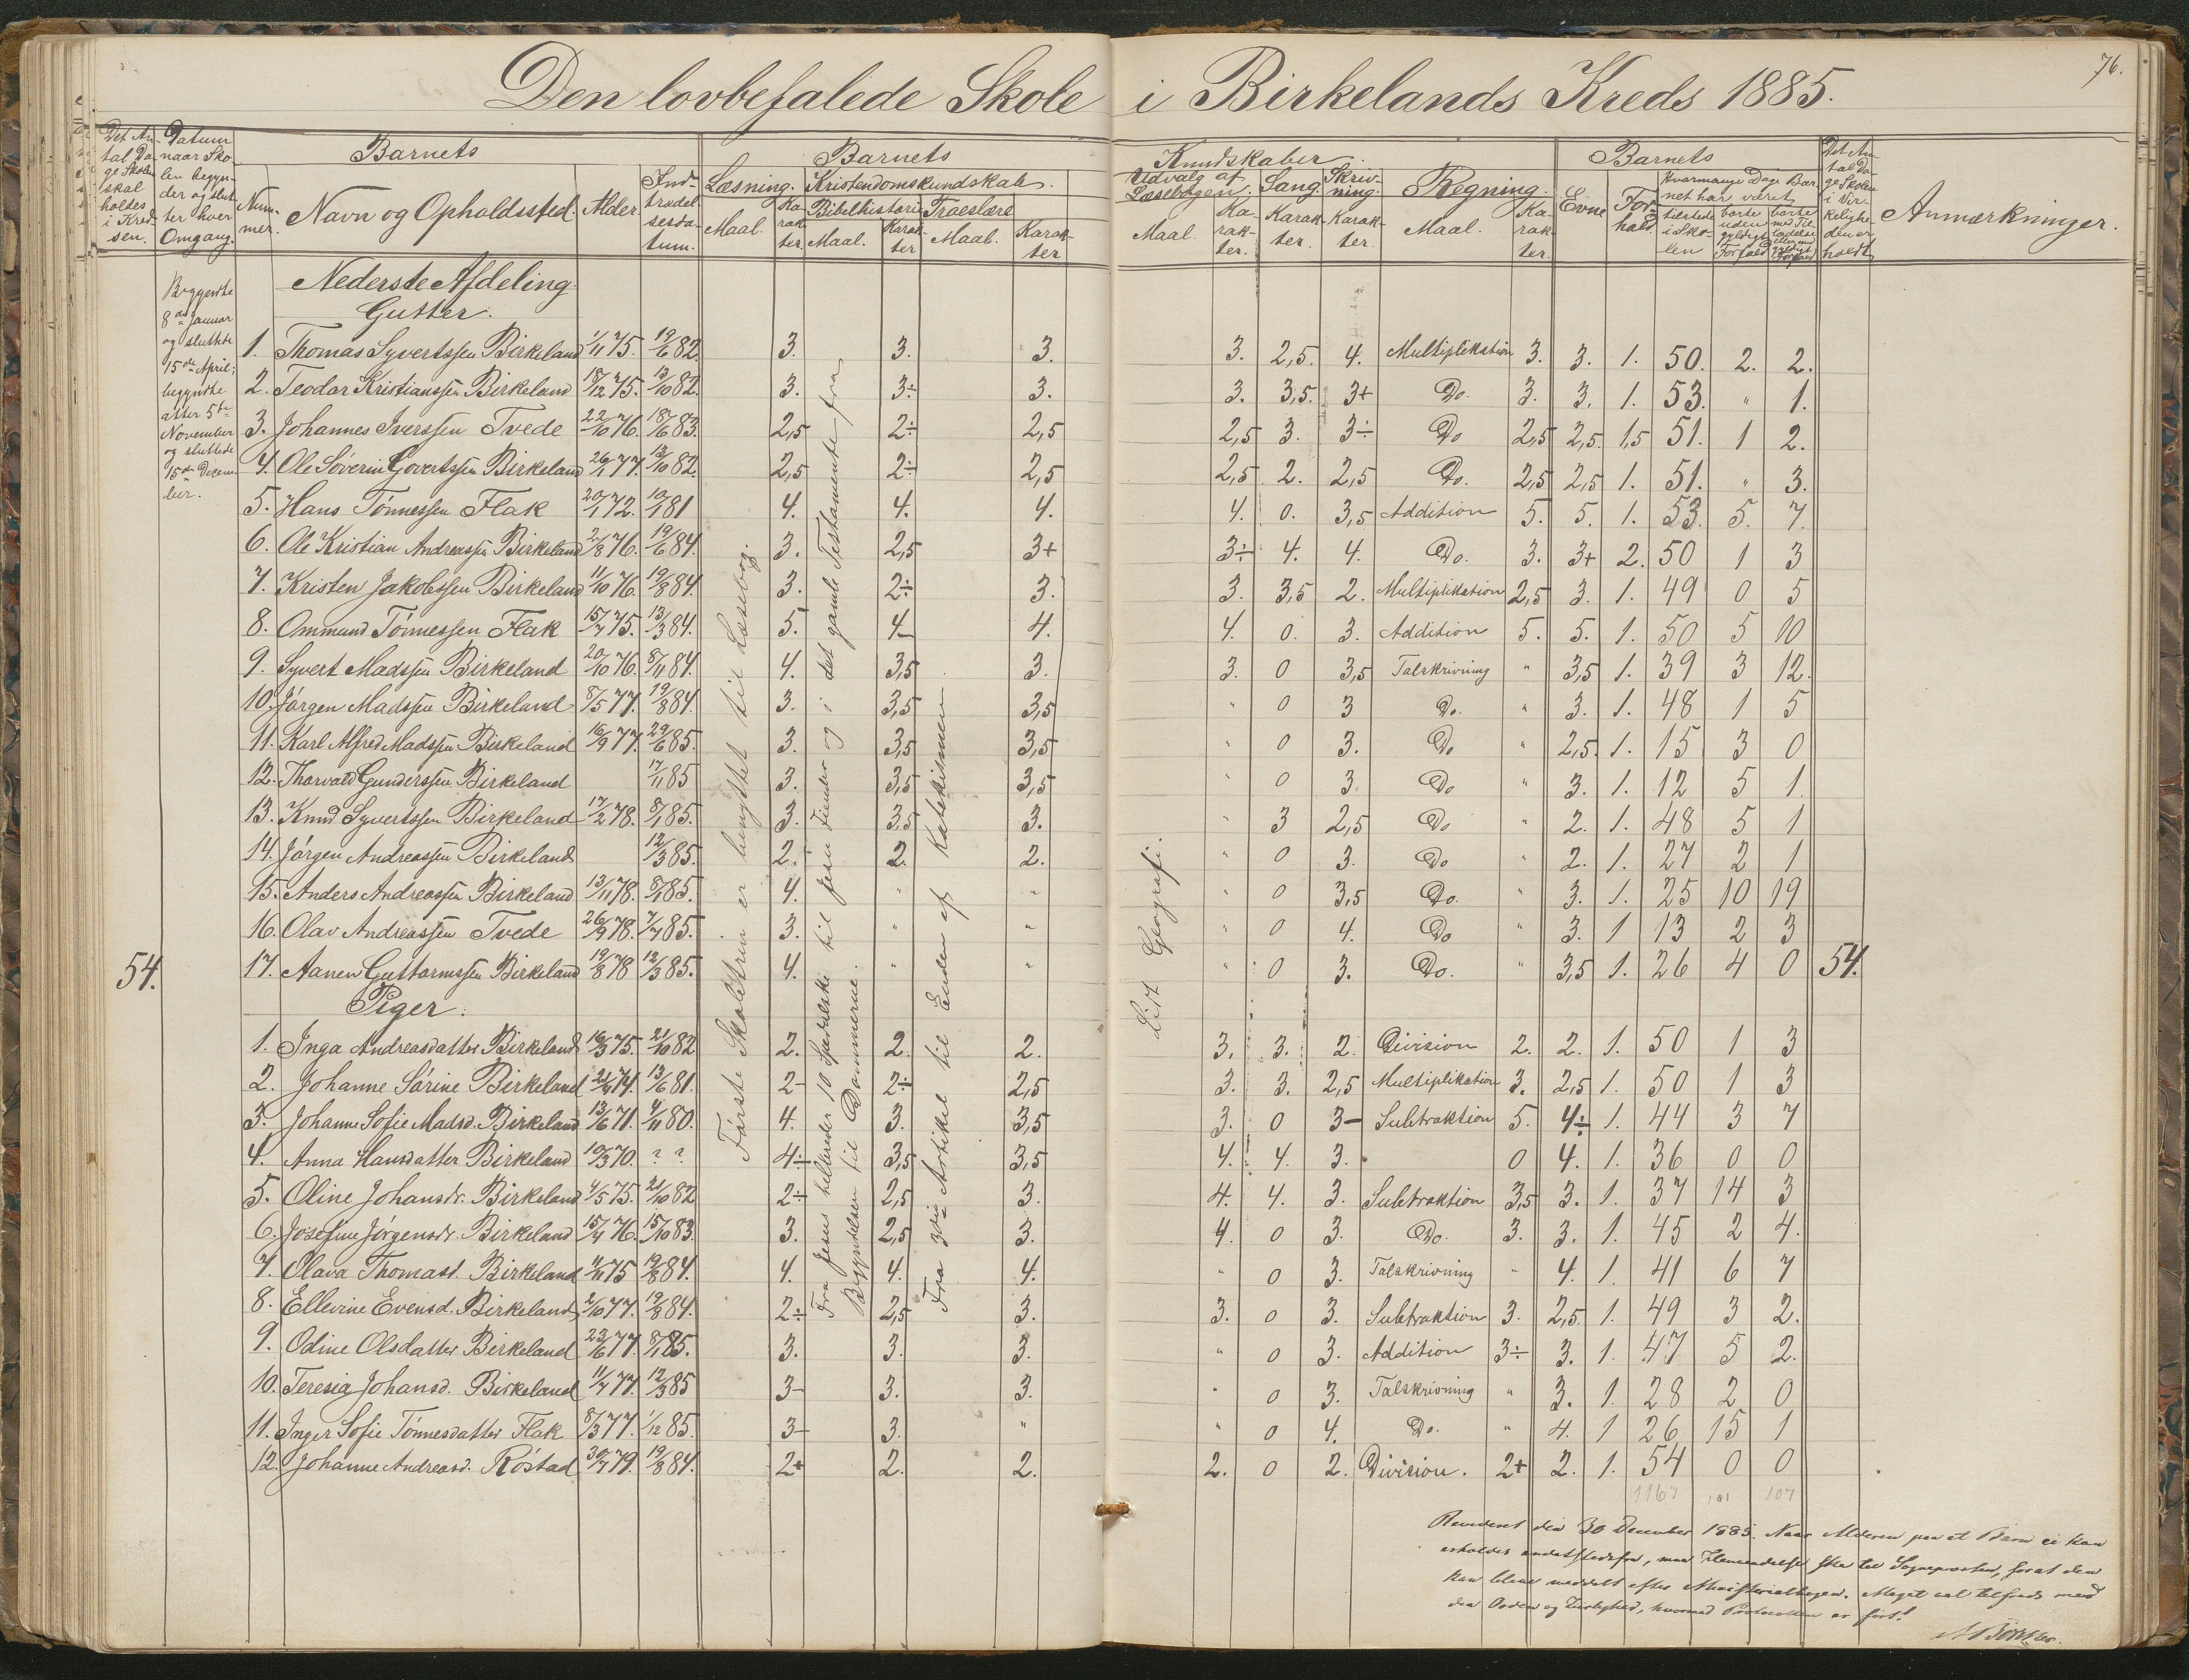 76.
Den lovbefalede Skole i Birkelands Kreds 1885.
Det Antal Dage Skolen skal holdes i Kredsen.
Datum naar Skolen begynder og slutter hver Omgang.
Barnets
Nummer.
Navn og Opholdssted.
Alder.
Indtrædelsesdatum.
Barnets Kundskaber
Læsning. Maal. Karakter.
Kristendomskundskab.
Bibelhistorie Maal. Karakter
Troeslære Maal. Karakter
Udvalg af Læsebogen. Maal. Karakter.
Sang. Karakter.
Skrivning. Karakter.
Regning. Maal. Karakter.
Barnets
Evne
Forhold
Hvormange Dage Barnet har været
tilstede i Skolen
borte uden gyldigt Forfald
borte m. Tilladelse eller med gyldigt Forfald
Det Antal Dage Skolen i Virkeligheden er holdt
Anmærkninger.
Begyndte 8de Januar og sluttede 15de April; begyndte atter 5te November og sluttede 15de December.
Nederste Afdeling.
Gutter.
1. Thomas Syvertssen Birkeland 1/11 75. 19/6 82. 3. 3. 3. 3. 2,5. 4. Multiplikation 3. 3. 1. 50. 2. 2.
2. Teodor Kristianssen Birkeland 18/12 75. 13/10 82. 3. 3÷ 3. 3. 3,5. 3+ Do. 3. 3. 1. 53. " 1.
3. Johannes Iverssen Tvede 22/10 76. 18/6 83. 2,5 2÷ 2,5 2,5 3. 3÷ Do 2,5 2,5. 1,5 51. 1 2.
4. Ole Søverin Govertssen Birkeland 26/1 77. 13/10 82. 2,5 2÷ 2,5 2,5 2. 2,5 Do. 2,5 2,5 1. 51. " 3.
5. Hans Tønnessen Flak 20/1 72. 10/1 81 4. 4. 4. 4. 0. 3,5 Addition 5. 5. 1. 53. 5. 7.
6. Ole Kristian Andreassen Birkeland 2/8 76. 19/6 84. 3. 2,5 3+ 3÷ 4. 4. Do. 3. 3+ 2. 50 1 3
7. Kristen Jakobssen Birkeland 11/10 76. 19/8 84. 3. 2÷ 3. 3. 3,5 2. Multiplikation 2,5 3. 1. 49 0 5
8. Ommund Tønnessen Flak 15/7 75. 13/3 84. 5. 4- 4. 4. 0. 3. Addition 5. 5. 1. 50 5 10
9. Syvert Madssen Birkeland 20/10 76. 8/11 84. 4. 3,5 3. 3. 0 3,5 Talskrivning " 3,5 1. 39 3 12.
10. Jørgen Madssen Birkeland 8/5 77. 19/8 84. 3. 3,5 3,5 " 0 3 Do. " 3. 1. 48 1 5
11. Karl Alfred Madssen Birkeland 16/9 77. 29/6 85. 3. 3,5 3,5 " 0 3. Do " 2,5. 1. 15 3 0
12. Thorvald Gunderssen Birkeland 17/11 85 3. 3,5 3,5 " 0 3 Do " 3. 1. 12 5 1
13. Knud Syvertssen Birkeland 17/2 78. 8/1 85. 3. 3,5 3. " 3 2,5 Do " 2. 1. 48 5 1
14. Jørgen Andreassen Birkeland 12/3 85. 2. 2. 2. " 0 3. Do " 2. 1. 27 2 1
15. Anders Andreassen Birkeland 13/11 78. 8/1 85. 4. " " " 0 3,5 Do. " 3. 1. 25 10 19
16. Olav Andreassen Tvede 26/9 78. 7/7 85. 3. " " " 0 4. Do " 3. 1 13 2 3
54. 17. Aanen Guttormssen Birkeland 19/8 78 12/3 85. 4. " " " 0 3. Do. " 3,5 1. 26 4 0 54.
Piger.
1. Inga Andreasdatter Birkeland 16/3 75. 21/10 82 2. 2. 2. 3. 3. 2. Division 2. 2. 1. 50 1 3
2. Johanne Sørine Birkeland 74. 13/6 81. 2- 2÷ 2,5 3. 3. 2,5 Multiplikation 3. 2,5 1. 50 1 3
3. Johanne Sofie Madsd. Birkeland 13/6 71. 4/11 80. 4. 3. 3,5 3. 0 3- Subtraktion 5. 4÷ 1. 44 3 7
4. Anna Hansdatter Birkeland 19/3 70. ? ? 4÷ 3,5 3,5 4. 4. 3. 0 4. 1. 36 0 0
5. Oline Johansdr. Birkeland 4/5 75. 21/10 82 2÷ 2,5 3. 4. 4. 3. Subtraktion 3,5 3. 1. 37 14 3
6. Josefine Jørgensdr. Birkeland 15/4 76. 15/10 83. 3. 2,5 3. 4. 0 3. Do. 3. 3. 1. 45 2 4.
7. Olava Thomasd. Birkeland 4/11 75 19/8 84. 4. 4. 4. " 0 3. Talskrivning " 4. 1. 41 6 7
8. Ellevine Evensd. Birkeland 2/10 77. 19/8 84. 2÷ 2,5 3. 3. 0 3. Subtraktion 3. 2,5. 1. 49 3 2.
9. Odine Olsdatter Birkeland 23/6 77. 8/1 85. 3. 3. 3. " 0 3. Addition 3÷ 3. 1. 47 5 2.
10. Teresia Johansd. Birkeland 11/7 77. 12/3 85 3- 3. 3. " 0 3. Talskrivning " 3. 1. 28 2 0
11. Inger Sofie Tønnesdatter Flak 8/3 77. 1/12 85. 3- 3. " " 0 4. Do. " 4. 1 26 15 1
12. Johanne Andreasd. Røstad 30/7 79. 19/8 84. 2+ 2. 2. 2. 0 2. Division. 2+ 2. 1. 54 0 0
1167 101 107
Første Skoletrin er benyttet til Læsebog.
Fra Jesus helbreder 10 Spedalske til Jesu Fiender og i det gamle Testamente fra
Begyndelsen til Dommerne.
Fra 3die Artikel til Enden af Katekismen
Lidt Geografi.
Revideret den 30 December 1885. Naar Alderen paa et Barn ei kan
erholdes andetstedsfra, maa Henvendelse ske til Sognepresten, forat den
kan blive meddelt efter Ministerialbogen. Meget vel tilfreds med
den Orden og Zirlighed, hvormed Protocollen er ført!